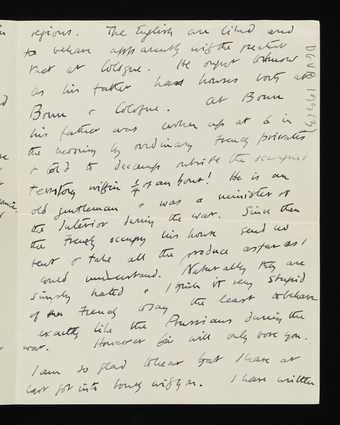 regions. The English are liked and
to behave apparently with the greatest
tact at Cologne. He ought to know
as his father has houses both at
Bonn & Cologne. At Bonn
his father was woken up at 6 in
the morning by ordinary French privates
& told to decamp outside the occupied
territory within ¼ of an hour! He is an
old gentleman & was a minister of
the Interior during the war. Since then
the French occupy his house send no
rent & take all the produce as far as I
could understand. Naturally they are
simply hated & I think it very stupid
of the French to say the least to behave
exactly like the Prussians during the
war. However this will only bore you.
I am so glad to hear that I have at
last got into touch with you. I have written